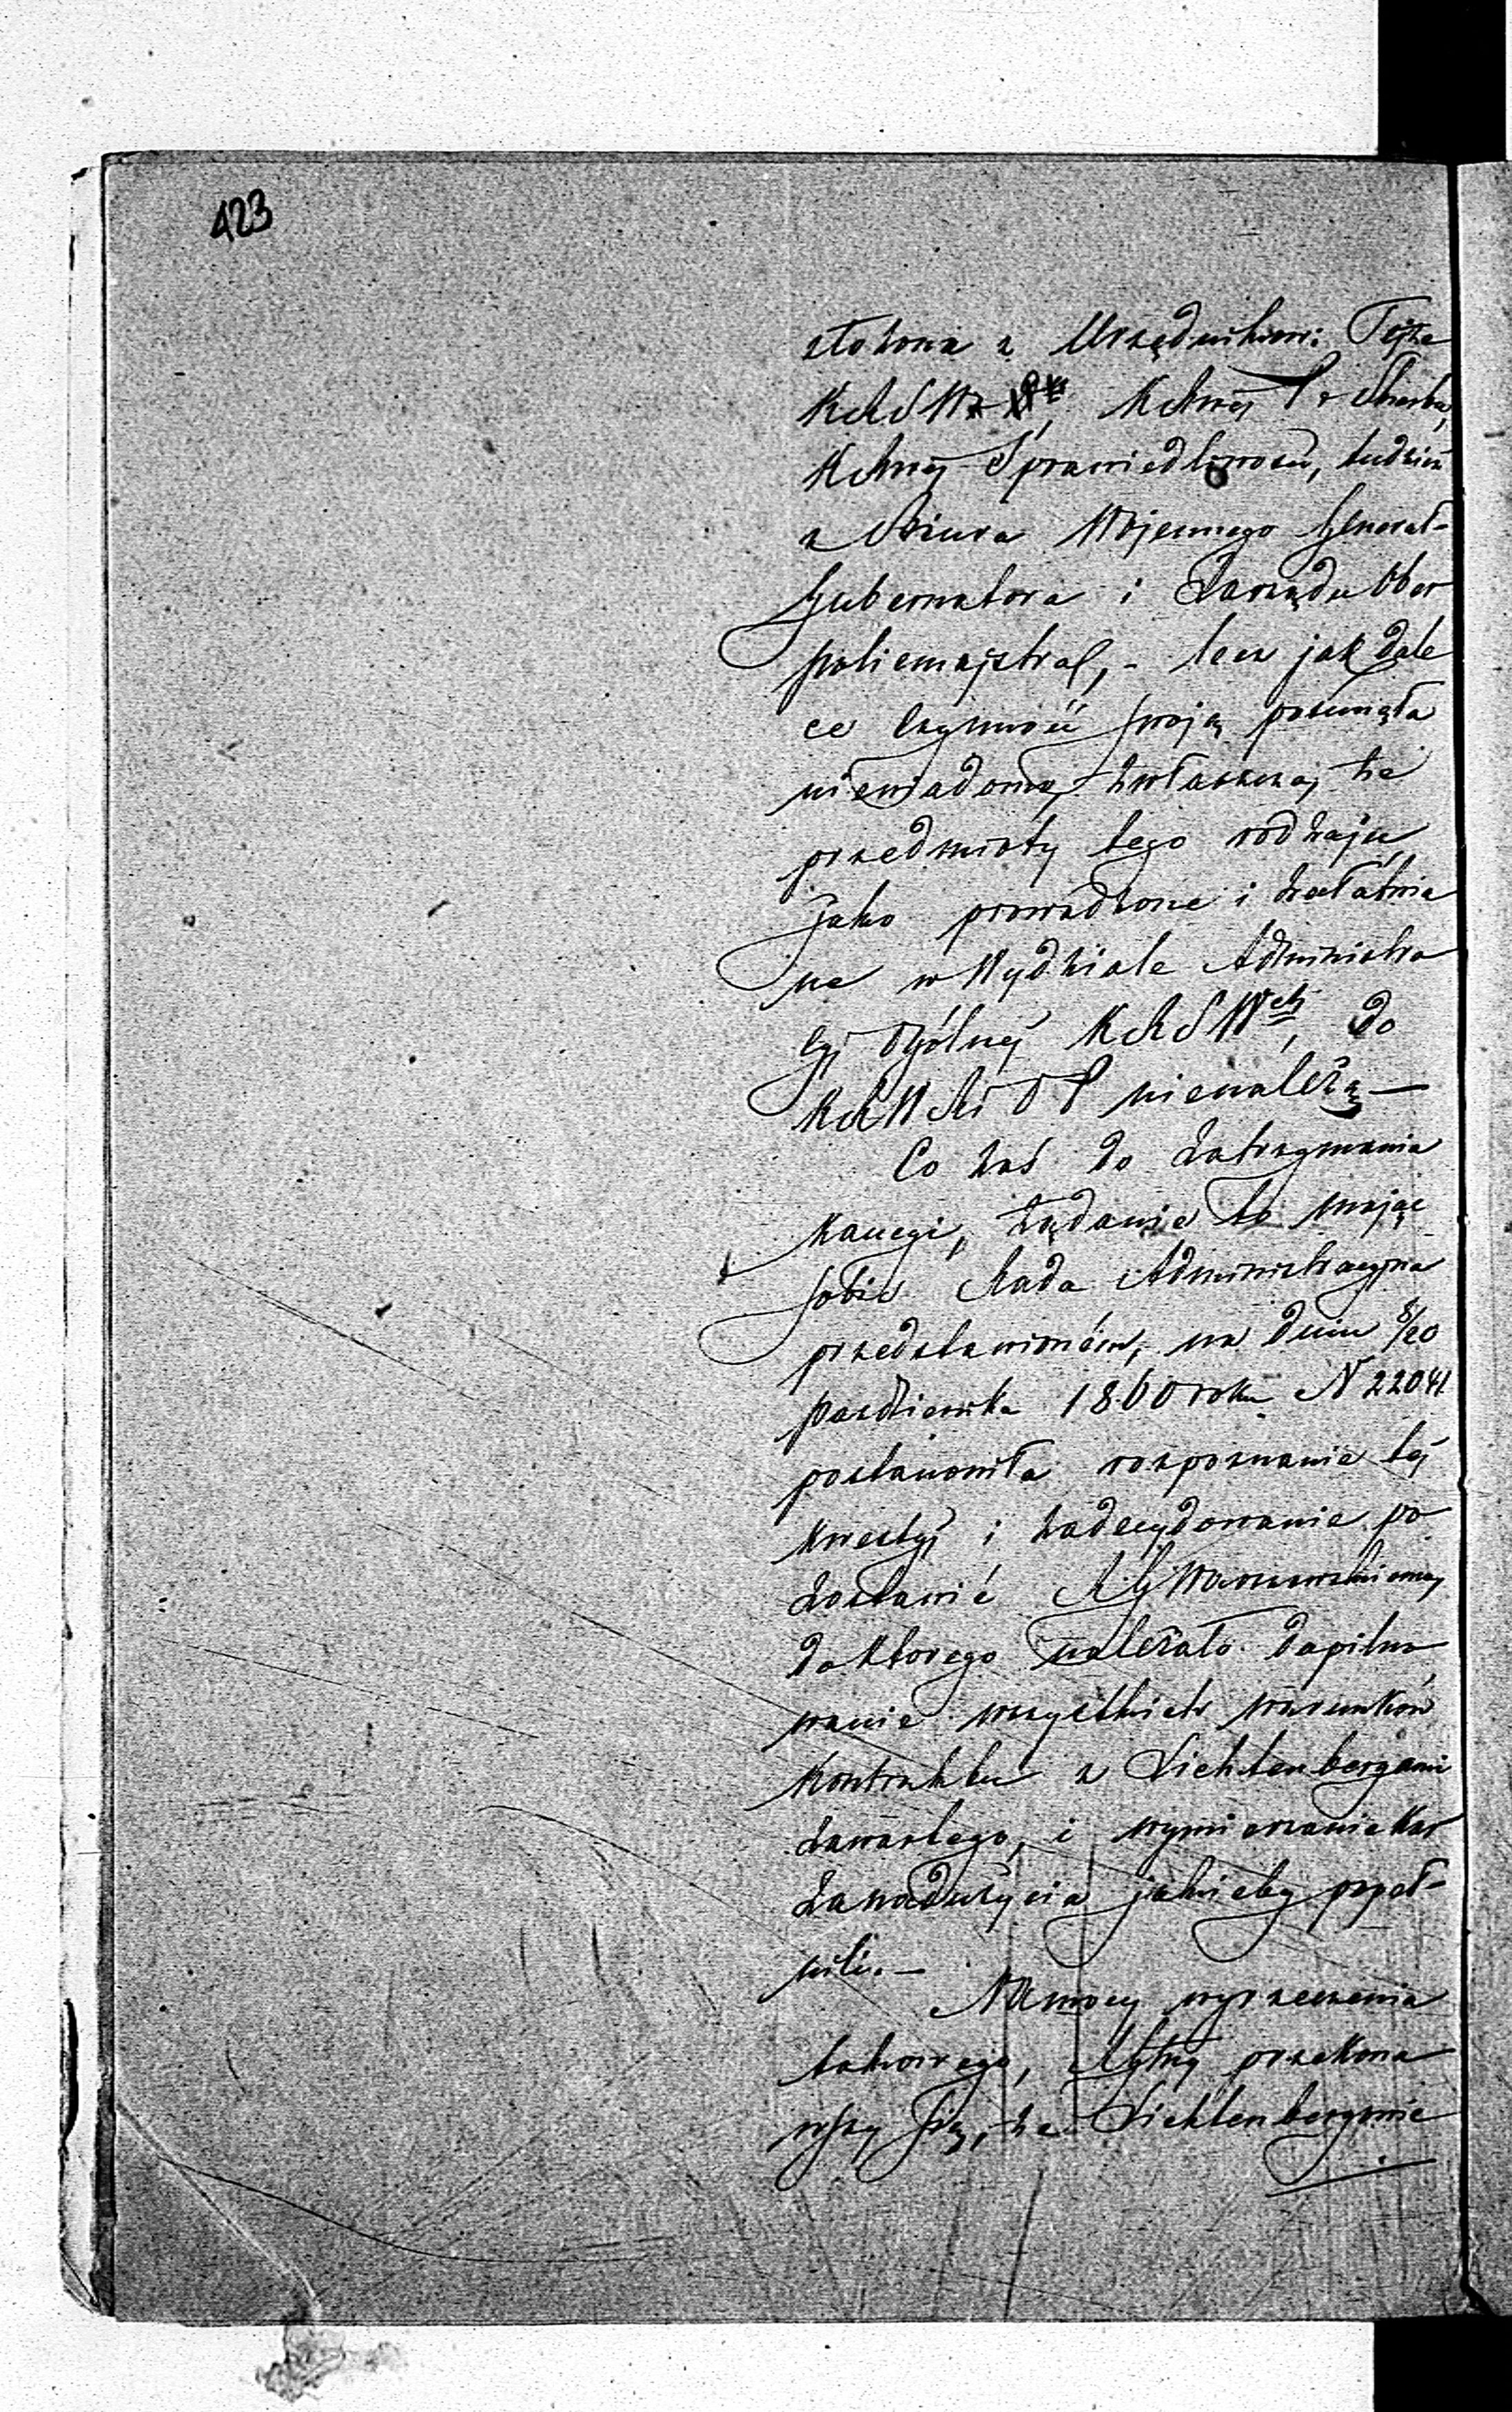 423
złożona z Urzędników: Tejże
KRSW Kchnéj P i Skarbu,
Kchnéj Sprawiedliwości, tudzież
z Biura Wojennego Generał-
Gubernatora i Zarządu Ober
policmajstra, - lecz jak dale
ce czynność swoją posunęła
niewiadomo, zwłaszcza, że
przedmioty tego rodzaju
jako prowadzone i załatwia
ne w Wydziale Administra
cyi Ogólnéj KRSWch, do
KRWRiOP nienależą —
Co zaś do zatrzymania
Kaucyi, żądanie to mając
sobie Rada Administracyjna
przedstawioném, na dniu 8/20
Października 1860 roku N 22041
postanowiła rozpoznanie téj
kwestyi i zadecydowanie po
zostawić RG Warszawskiemu,
do którego należało dopilno
wanie wszystkich warunków
Kontraktu z Lichtenbergami
zawartego, i wymierzanie Kar
za nadużycia jakieby popeł-
nili. —
Na mocy wyrzeczenia
takowego, przekona
wszy się, że Lichtenbergowie